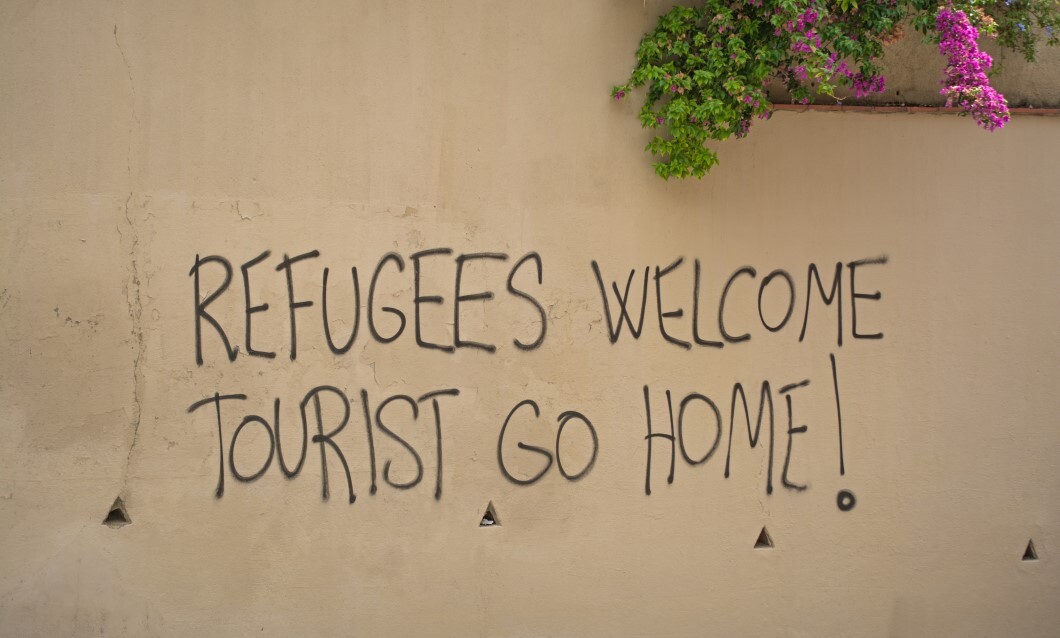 REFUGEES WELCOME
TOURIST GO HOME!